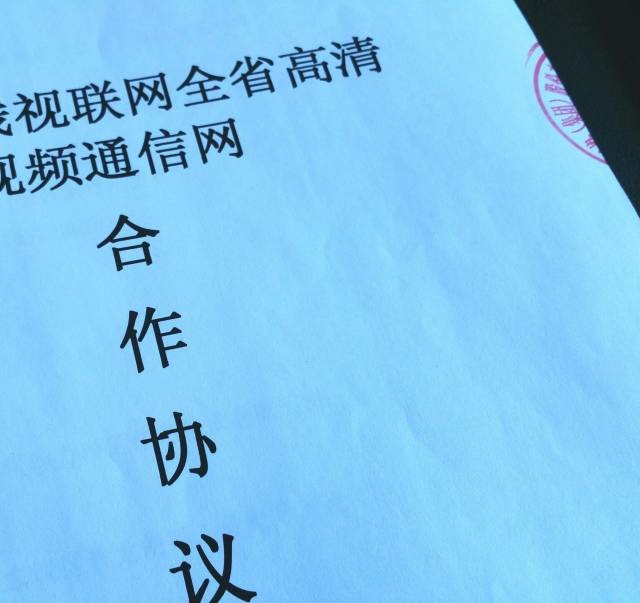 视联网全省高清
视频通信网
合
作
协
议